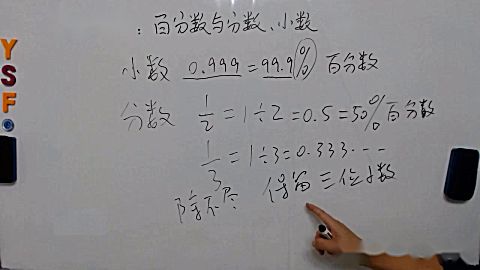 ：百分数与分数、小数
小数 0.999=99.9% 百分数
分数 1/2=1÷2=0.5=50% 百分数
1/3=1÷3=0.333...
除不尽 保留三位小数
YSF